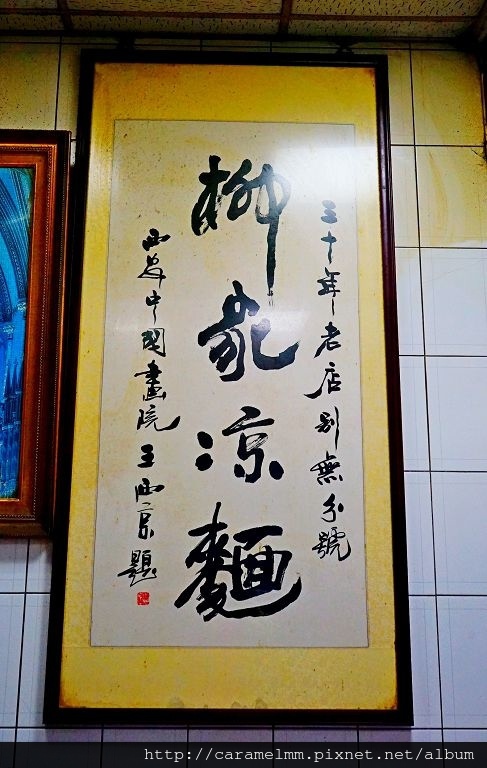 三十年老店別無分號
柳家凉麵
西安中國畫院王西京題
http://caramelmm.pixnet.net/album